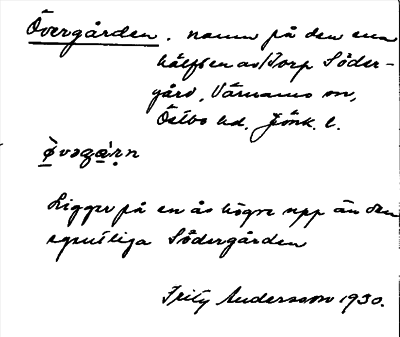 Övergården. namn på den ena
hälften av Torp Söder-
gård, Värnamo sn,
Östbo hd. Jönk. l.
Ligger på en ås högre upp än den
egentliga Södergården
Fritz Andersson 1930.